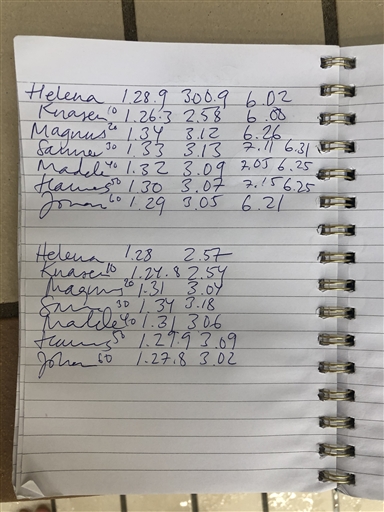 Helena 1.28.9 3.00.9 6.02
Knasen 10 1.26.3 2.58 6.00
Magnus 20 1.34 3.12 6.26
Sanne 30 1.33 3.13 7.11 6.31
Madele 40 1.32 3.09 7.05 6.25
Hannes 50 1.30 3.07 7.15 6.25
Johan 60 1.29 3.05 6.21
Helena 1.28 2.57
Knasen 10 1.24.8 2.54
Magnus 20 1.31 3.04
San 30 1.34 3.18
Matilde 40 1.31 3.06
Hannes 50 1.29.9 3.09
Johan 60 1.27.8 3.02